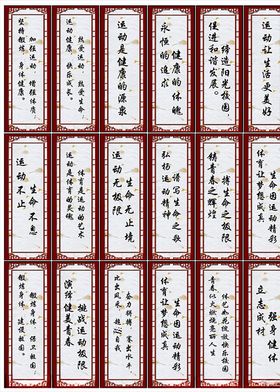 加强运动 增强体质
坚持锻炼 身体健康。
热爱运动 热爱生命
运动健康 快乐成长
运动是健康的源泉
健康的体魄
永恒的追求
缔造阳光校园
促进和谐发展。
运动让生活更美好
生命不息
运动不止
体育是运动的艺术
运动是体育的灵魂
生命无止境
运动无极限
谱写生命之歌
弘扬运动精神
搏生命之极限
铸青春之辉煌
生命因运动精彩
体育让梦想成真
锻炼身体，保卫祖国
锻炼身体，建设祖国。
挑战运动极限
演绎健美青春
奋力拼搏、赛出水平
比出风采、超越自我
生命因运动精彩
体育让梦想成真
体艺如花绽放快乐校园
青春似火燃放亮丽人生
强身健体
立志成材